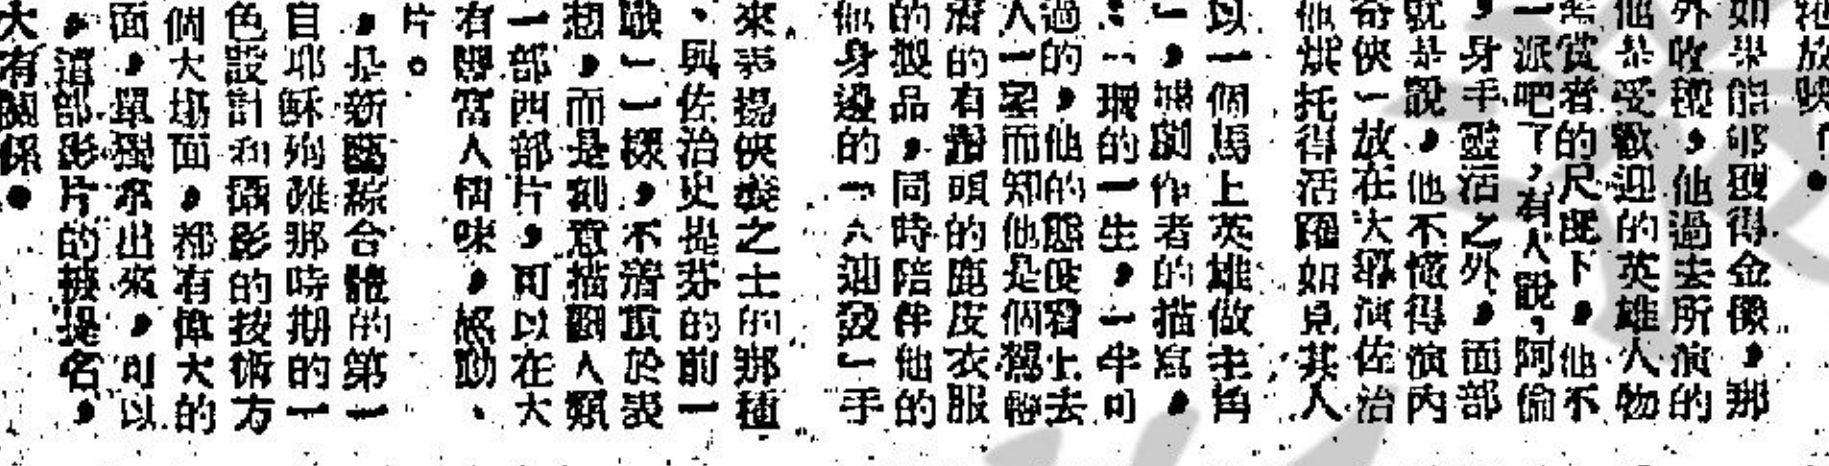 牠放映！●
如果能够獲得金像，那
外收穫，他過去所演的
他是受歡迎的英雄人物
賞者的尺度下，他不
一派吧了，有人說，阿倫
，身手靈活之外，面部
就是說，他不懂得演內
奇俠一放在大導演佐治
他烘托得活躍如見其人
以一個馬上英雄做主角
」，編劇作者的描寫，
的一生，一半可
過的，他的態度看上去
人一望而知他是個
的有摺頭的鹿皮衣服
的製品，同時陪伴他的
他身邊的一人連發」手
來表揚俠義之士的那種
、與佐治史提芬的前一
戰」一樣，不着重於表
，而是刻意描觀人類
一部西部片，可以在大
有豐富人情味，感動、
片。
，是新藝綜合體的第一
自耶穌殉難那時期的一
色設計和攝影的技術方
個大場面，都有偉大的
面，單獨拿出來，可以
，這部影片的被提名，
大有關係●